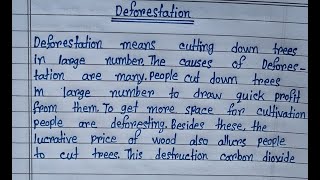 Deforestation
Deforestation means cutting down trees
In large number. The causes of Defores-
tation are many. People cut down trees
In large number to draw quick profit
from them. To get more space for cultivation
people are deforesting. Besides these, the
lucrative price of wood also allurs people
to cut trees. This destruction carbon dioxide